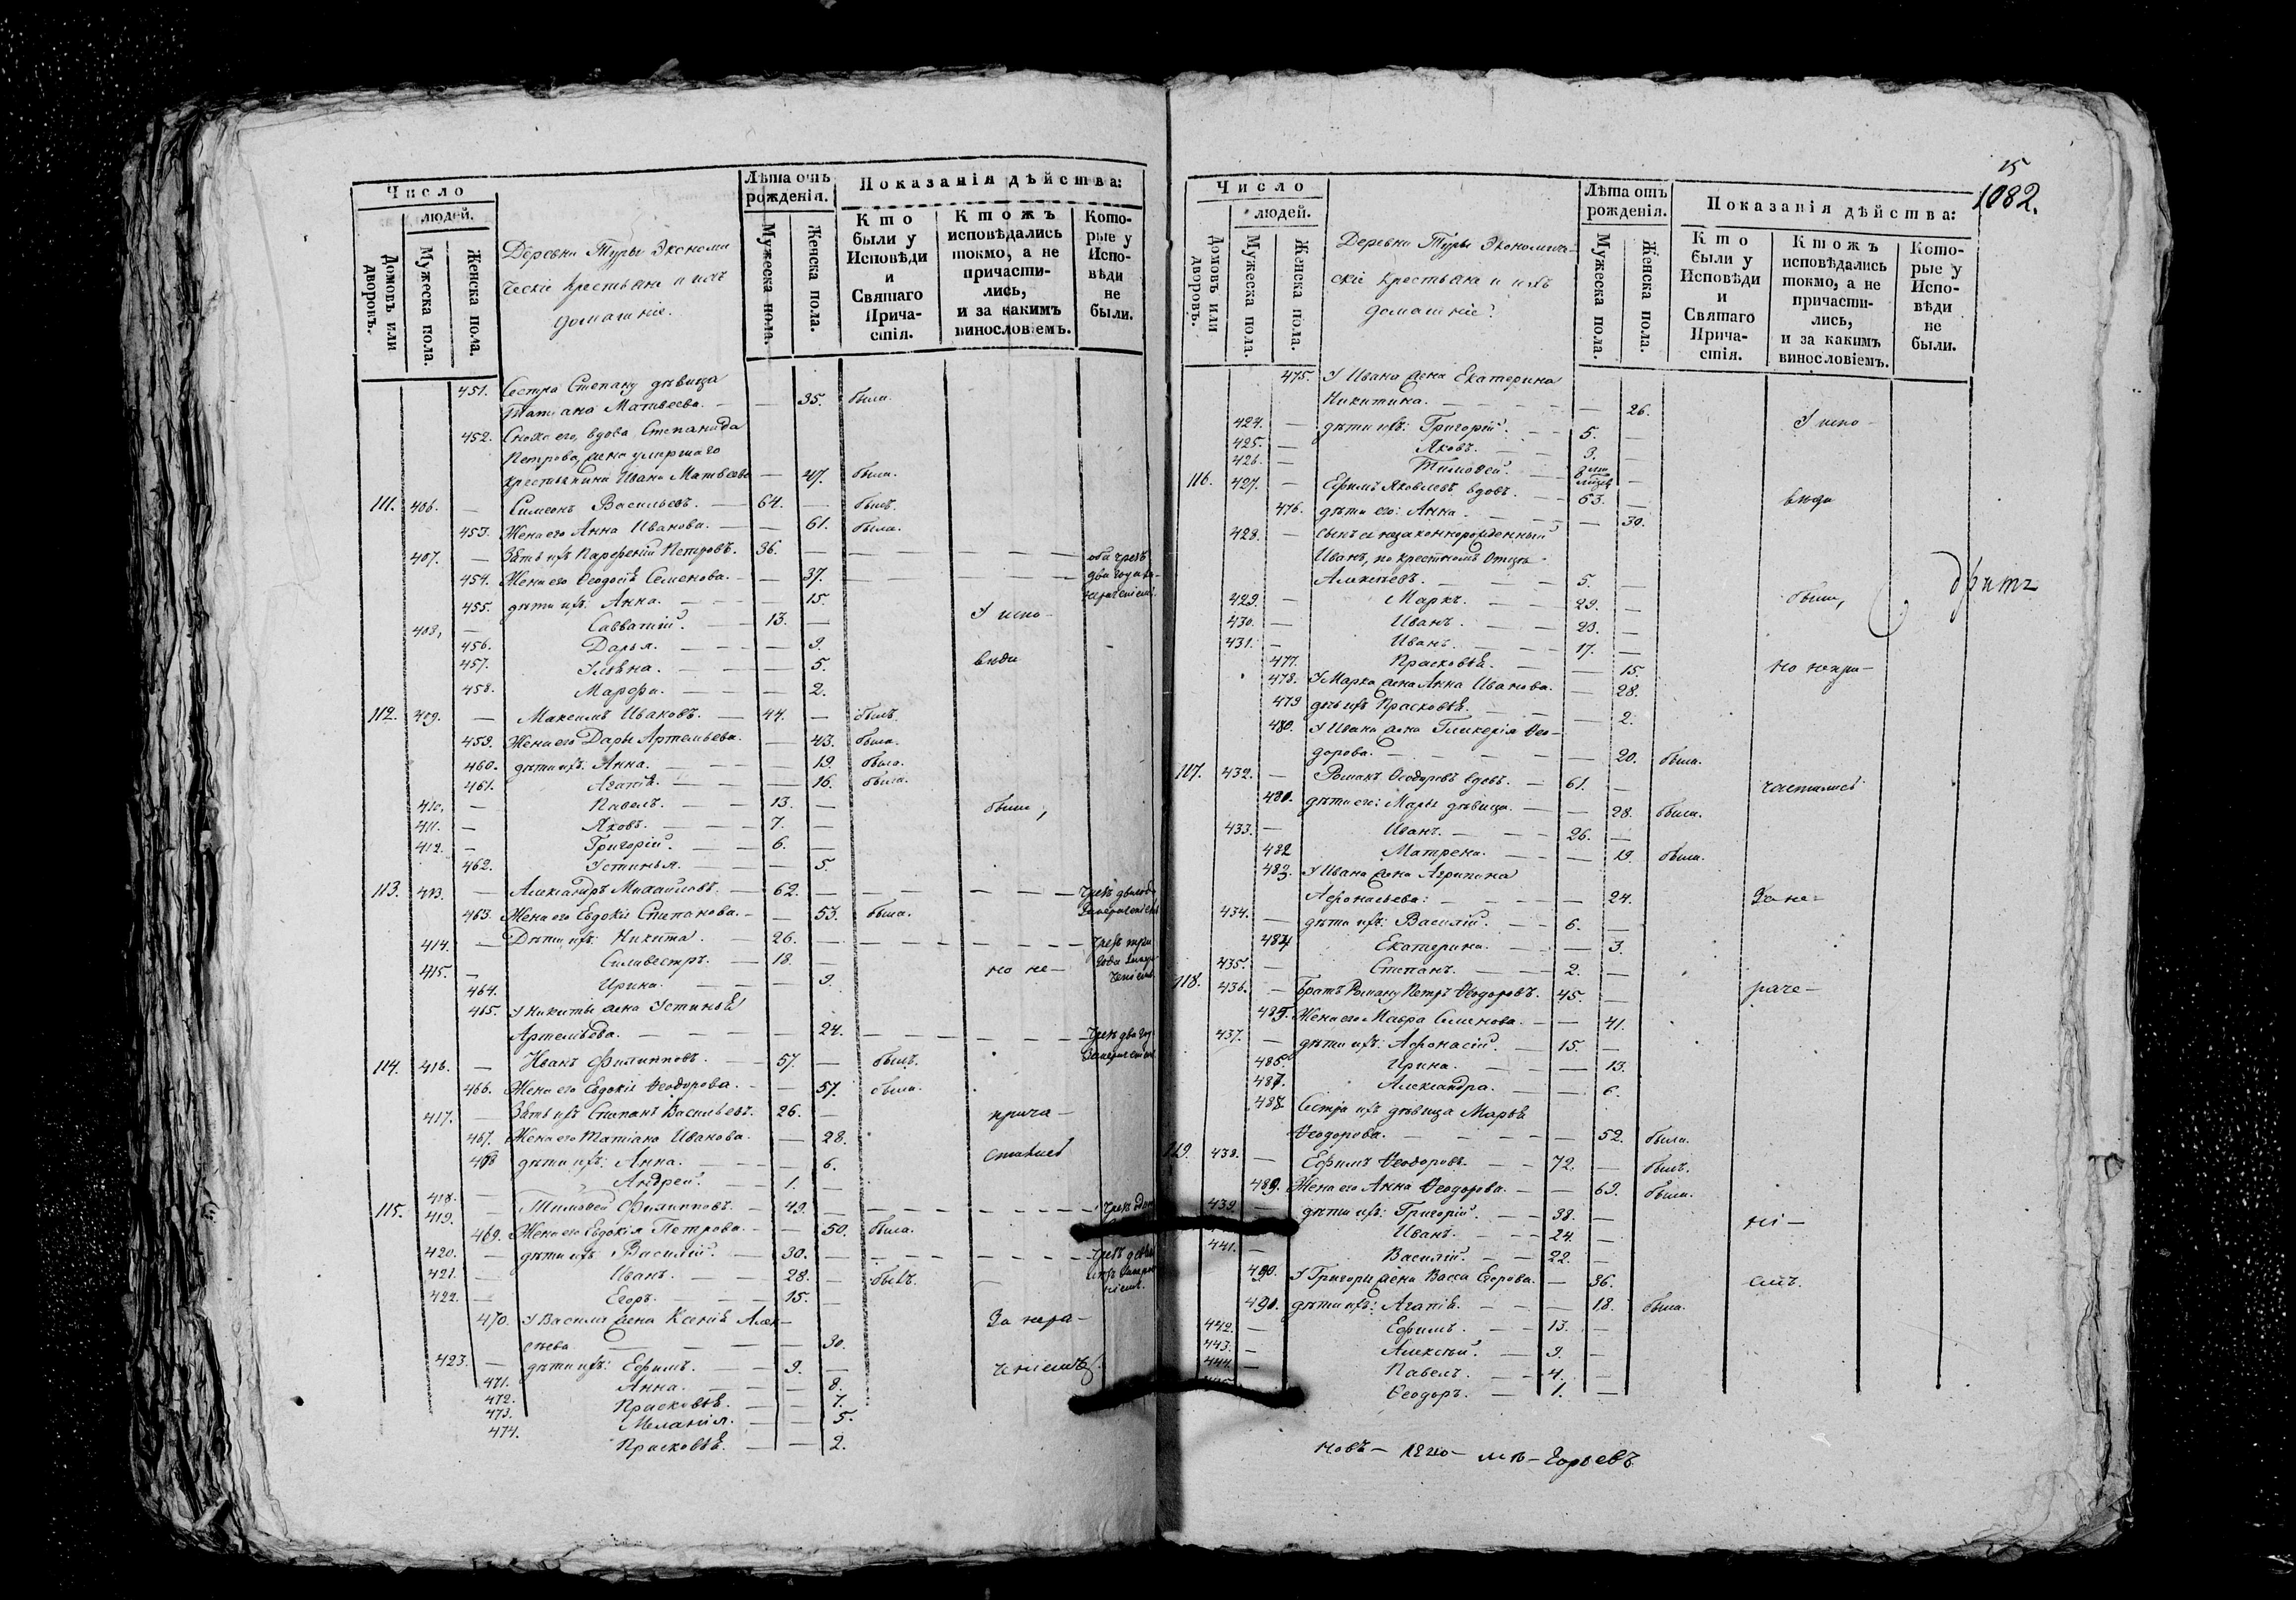 Число
людей.
Домовъ или дворовъ.
Мужеска пола.
Женска пола.
Деревни Туры Экономи
ческіе крестьяна и ихъ
домашніе.
Лѣта отъ рожденія.
Мужеска пола.
Женска пола.
Показанія дѣйства:
Кто были у Исповѣди и Святаго Прича-стія.
Ктожъ исповѣдались токмо, а не причасти-лись, и за какимъ винословіемъ.
Кото-рые у Испо-вѣди не были.
451. Сестра Степану дѣвица
Татіана Матвеева. — — 35. была.
452. Сноха его, вдова Степанида
Петрова, жена умершаго
крестьянина Ивана Матвеева — 47. была.
111. 406. — Симеонъ Васильевъ. — 64. — былъ.
453. Жена его Анна Иванова. — — 61. была.
407. — Зять ихъ Парфеній Петровъ. 36. — — — — оба чрезъ
454. Жена его Ѳеодосія Семенова. — — 37. — — — два года за
455. дѣти ихъ: Анна. — — — 15. нераченіемъ.
408. — Савватій. — 13. — У испо-
456. Дарья. — — — 9.
457. Ульяна. — — — 5. вѣди
458. Марфа. — — — 2.
112. 409. — Максимъ Ивановъ. — 44. — былъ.
459. Жена его Дарья Артемьева. — 43. была.
460. дѣти ихъ: Анна. — — — 19. была.
461. Агапія. — — — 16. была.
410. — Павелъ. — — 13. — были,
411. — Яковъ. — — 7. —
412. — Григорій. — — 6. —
462. Устинья. — — 5.
113. 413. — Александръ Михайловъ. — 62. — — — — чрезъ два года
463. Жена его Евдокія Степанова. — — 53. была. за нераченіемъ
414. — Дѣти ихъ: Никита. — 26. — — — — чрезъ три
415. — Силивестръ. — 18. — но не- года за нера
464. Ирина. — — — 9. ченіемъ
465. У Никиты жена Устинья
Артемьева. — — — 24. — — — чрезъ два года
114. 416. — Иванъ Филипповъ. — 57. — былъ. за нераченіемъ
466. Жена его Евдокія Ѳеодорова. — — 57. была.
417. — Зять ихъ Степанъ Васильевъ. 26. — прича-
467. Жена его Татіана Иванова. — 28.
468 дѣти ихъ: Анна. — — — 6. стились
418. — Андрей. — — 1. —
115. 419. — Тимоѳей Филипповъ. — 49. — — — — чрезъ
469. Жена его Евдокія Петрова. — — 50. была.
420. — дѣти ихъ: Василій. — 30. — — — — чрезъ
421. — Иванъ. — — 28. — былъ.
422. — Егоръ. — — 15. —
470. У Василья жена Ксенія Алек- За нера-
сѣева. — — — 30.
423. — дѣти ихъ: Ефимъ. — 9. — ченіемъ.
471. Анна. — — 8.
472. Прасковья. — — 7.
473. Меланія. — — 5.
474. Прасковья. — — 2.
15
1082.
Число
людей.
Домовъ или дворовъ.
Мужеска пола.
Женска пола.
Деревни Туры Экономиче-
скіе крестьяна и ихъ
домашніе.
Лѣта отъ рожденія.
Мужеска пола.
Женска пола.
Показанія дѣйства:
Кто были у Исповѣди и Святаго Прича-стія.
Ктожъ исповѣдались токмо, а не причасти-лись, и за какимъ винословіемъ.
Кото-рые у Испо-вѣди не были.
475. У Ивана жена Екатерина
Никитина. — — — — 26.
424. — дѣти ихъ: Григорій. — 5. — У испо-
425. — Яковъ. — — 3. —
426. — Тимоѳей. —
116. 427. — Ефимъ Яковлевъ, вдовъ. — 63. — вѣди
476. дѣти его: Анна. — — — 30.
428. — Сынъ ея незаконнорожденный
Иванъ, по крестномъ отцѣ
Алексѣевъ. — — 5. —
429. — Маркъ. — — 29. — были,
430. — Иванъ. — — 23. —
431. — Иванъ. — — 17. —
477. Прасковья. — — 15. но непри-
478. У Марка жена Анна Иванова. — 28.
479 дочь ихъ Прасковья. — — 2.
480. У Ивана жена Гликерія Ѳео-
дорова. — — — 20. была.
117. 432. — Романъ Ѳеодоровъ вдовъ. — 61. — частились
481. дѣти его: Марья дѣвица. — — 28. была.
433. — Иванъ. — — 26. —
482 Матрена. — — 19. была.
483. У Ивана жена Агрипина
Афонасьева: — — — 24. За не-
434. — дѣти ихъ: Василій. — 6. —
484 Екатерина. — — 3.
435. — Степанъ. — — 2. —
118. 436. — Братъ Роману Петръ Ѳеодоровъ. 45. — раче-
485. Жена его Мавра Семенова. — — 41.
437. — дѣти ихъ: Афонасій. — 15. —
486. Ирина. — — — 13.
487. Александра. — — 6.
488. Сестра ихъ дѣвица Марья
Ѳеодорова. — — — 52. была.
119. 438. — Ефимъ Ѳеодоровъ. — 72. — былъ.
489. Жена его Анна Ѳеодорова. — — 69. была.
439 — дѣти ихъ: Григорій. — 38. — ні-
Иванъ. — — 24. —
441. — Василій. — — 22. —
490. У Григорья жена Васса Егорова. — 36. емъ.
491. дѣти ихъ: Агапія. — — 18. была.
442. — Ефимъ. — — 13. —
443. — Алексѣй. — 9. —
444. — Павелъ. — — 4. —
Ѳеодоръ. — 1. —